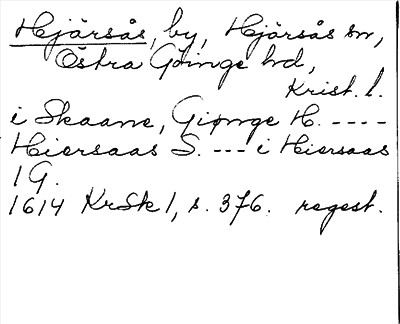 Hjärsås, by, Hjärsås sn,
Östra Göinge hd,
Krist. l.
i Skaane, Giønge H. ----
Hiersaas S. --- i Hiersaas
1 G.
1614 KrSk 1, s. 376. regest.